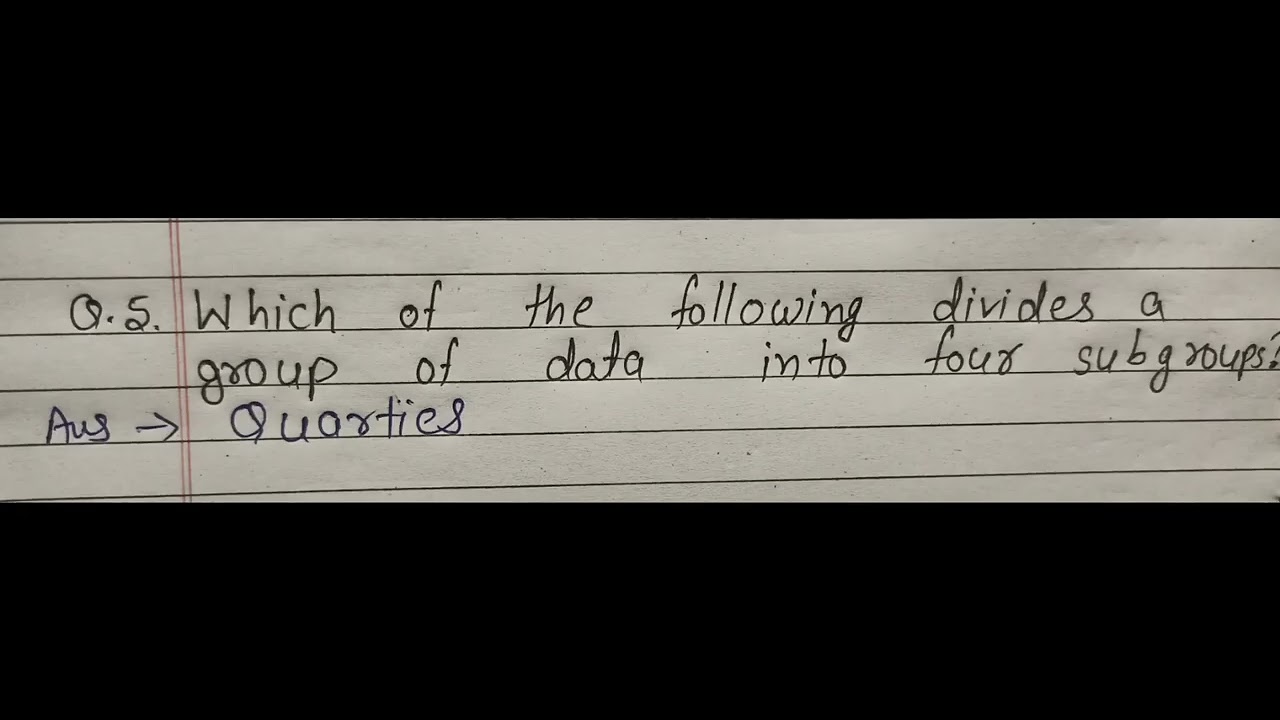 Q.5. Which of the following divides a
group of data into four subgroups?
Ans → Quarties